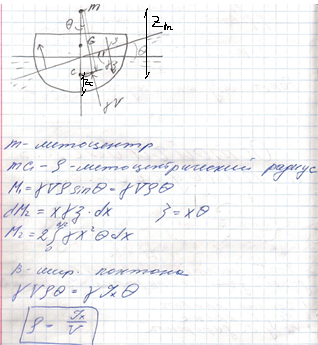 m
θ
G
C
θ
Zm
γV
m - метацентр
mC - ρ - метацентрический радиус
M₁ = γVρ sinθ = γVρθ
dM₂ = xγz·dx z = xθ
M₂ = 2∫γx²θdx
B - шир. понтона
γVρθ = γJₓθ
ρ = Jₓ/V